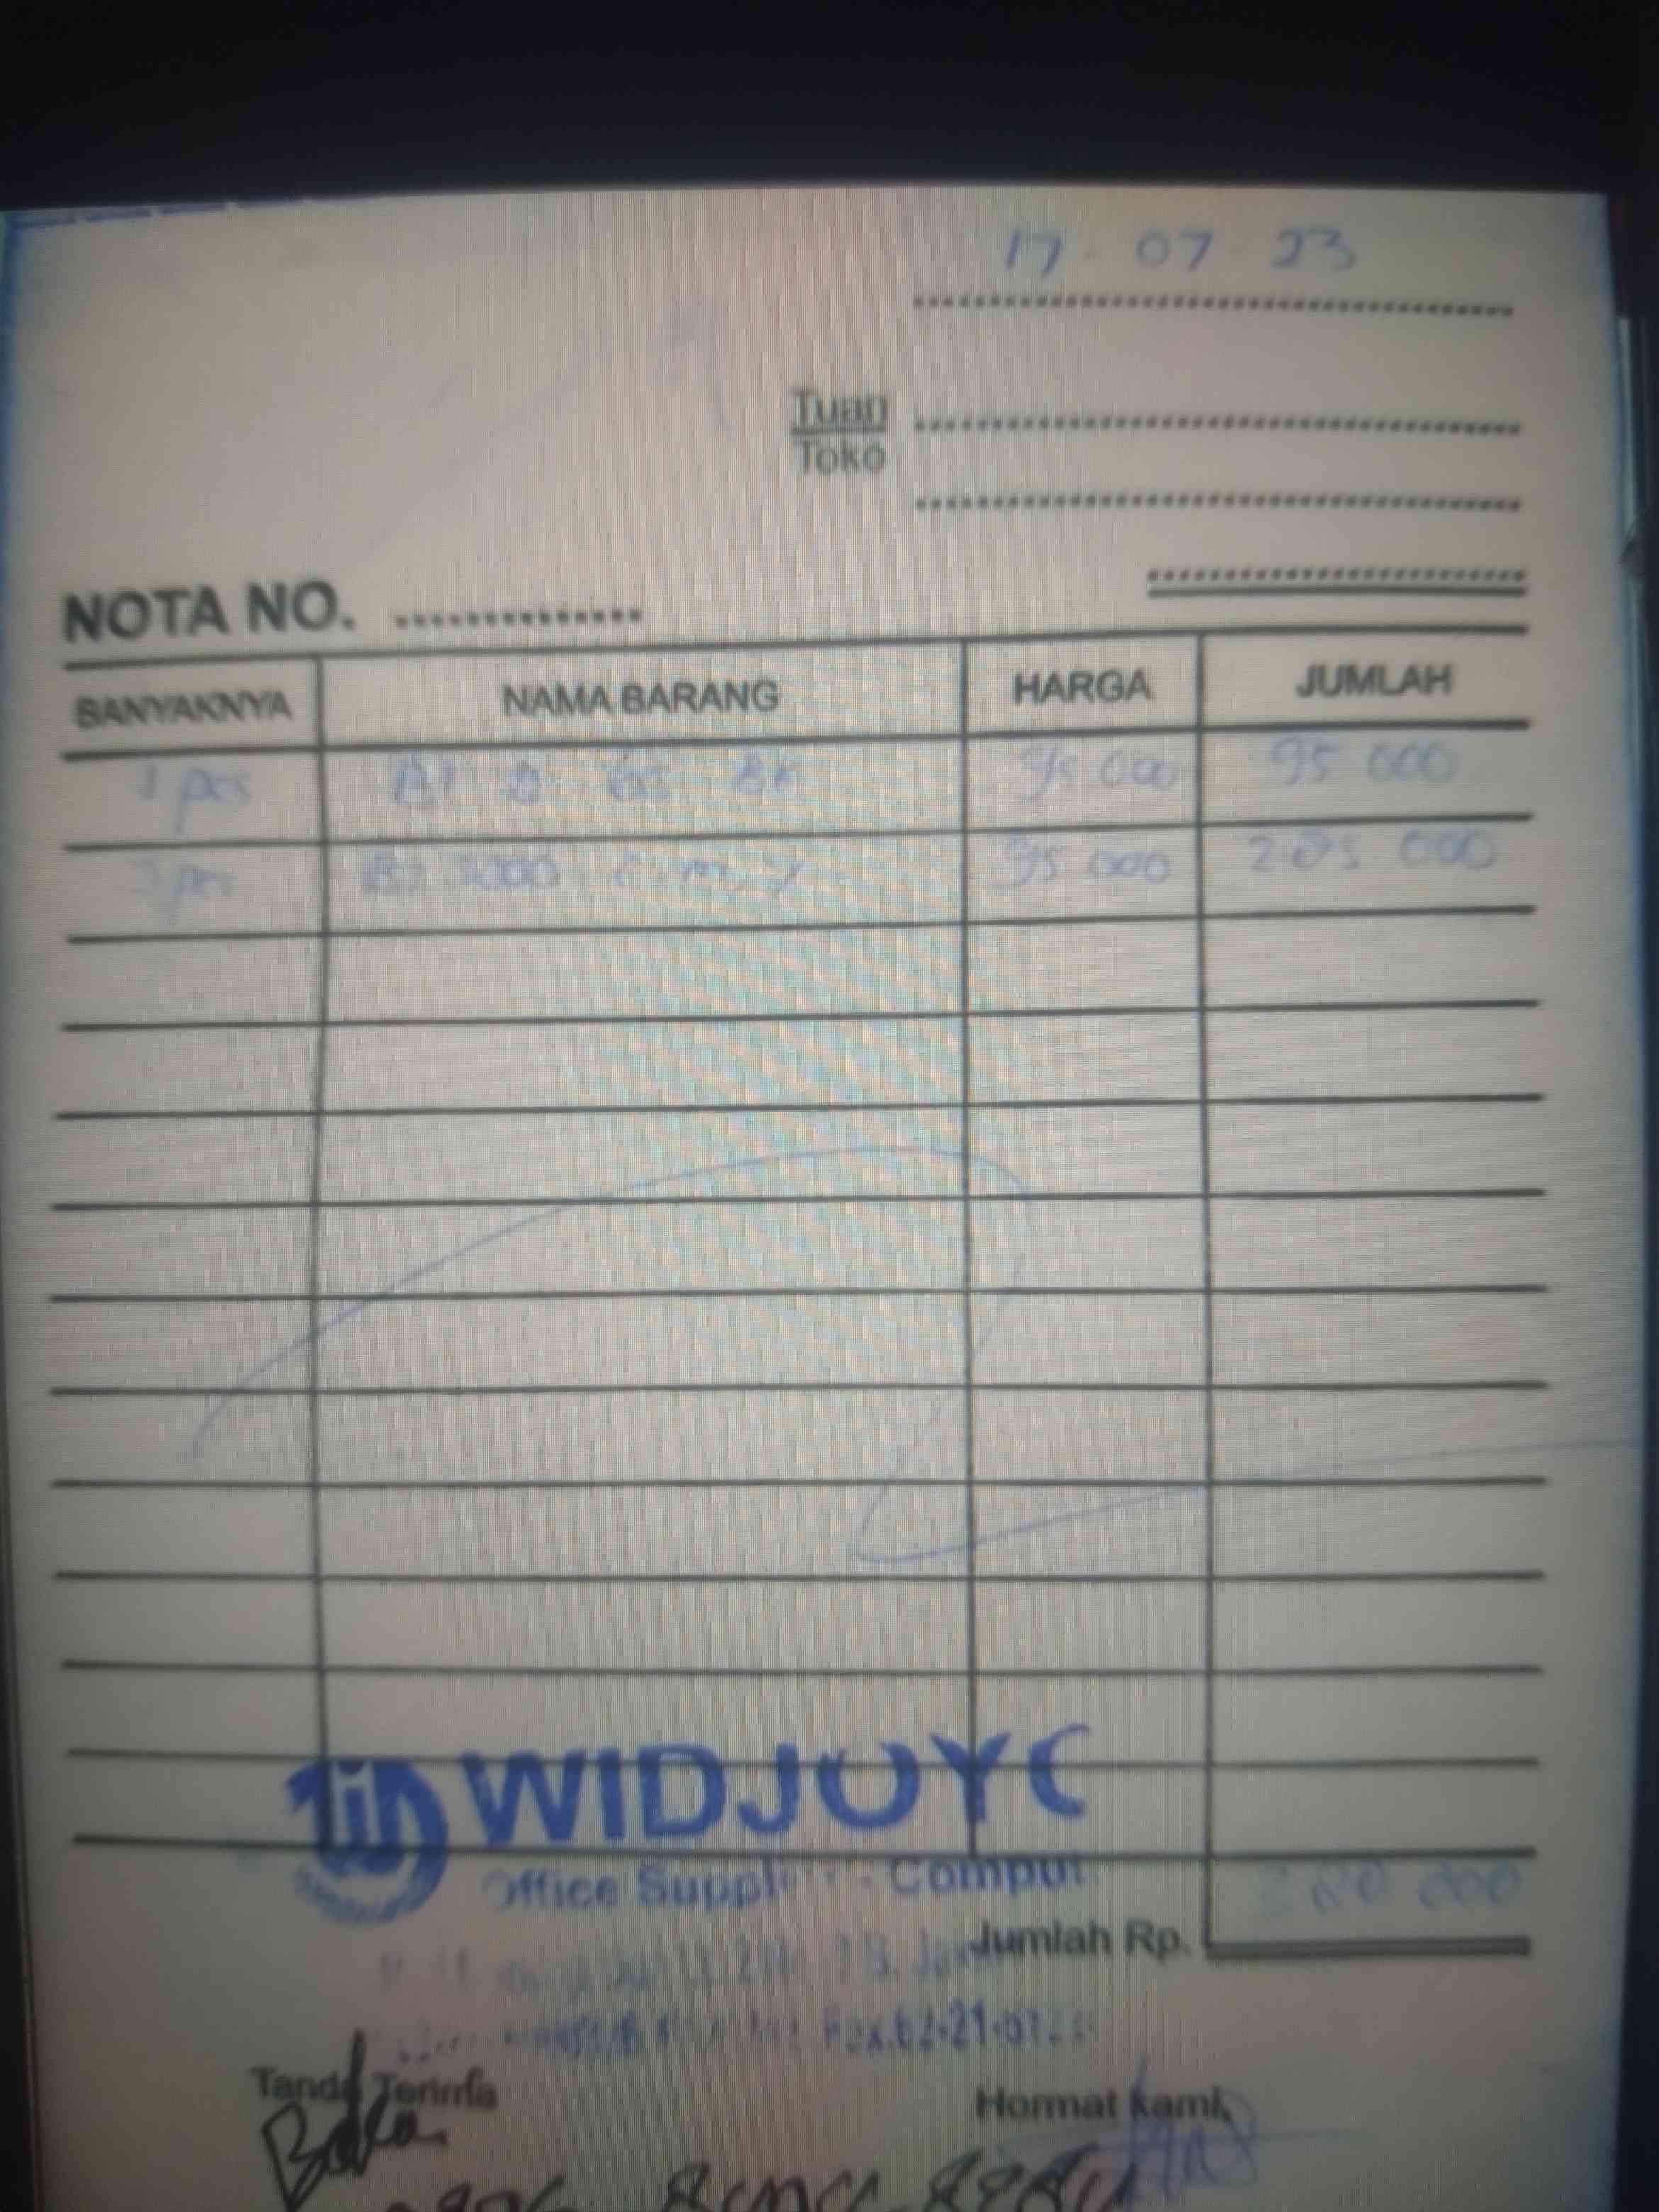 17-07-23
Tuan
Toko
NOTA NO.
BANYAKNYA NAMA BARANG HARGA JUMLAH
1 pcs BT D 60 BK 95.000 95 000
3 pcs BT 5000 C, m, y 95 000 285 000
WIDJOYO
Office Suppli Comput
380 000
Jumlah Rp.
Fax.62-21-612
Tanda Terima
Hormat kami,